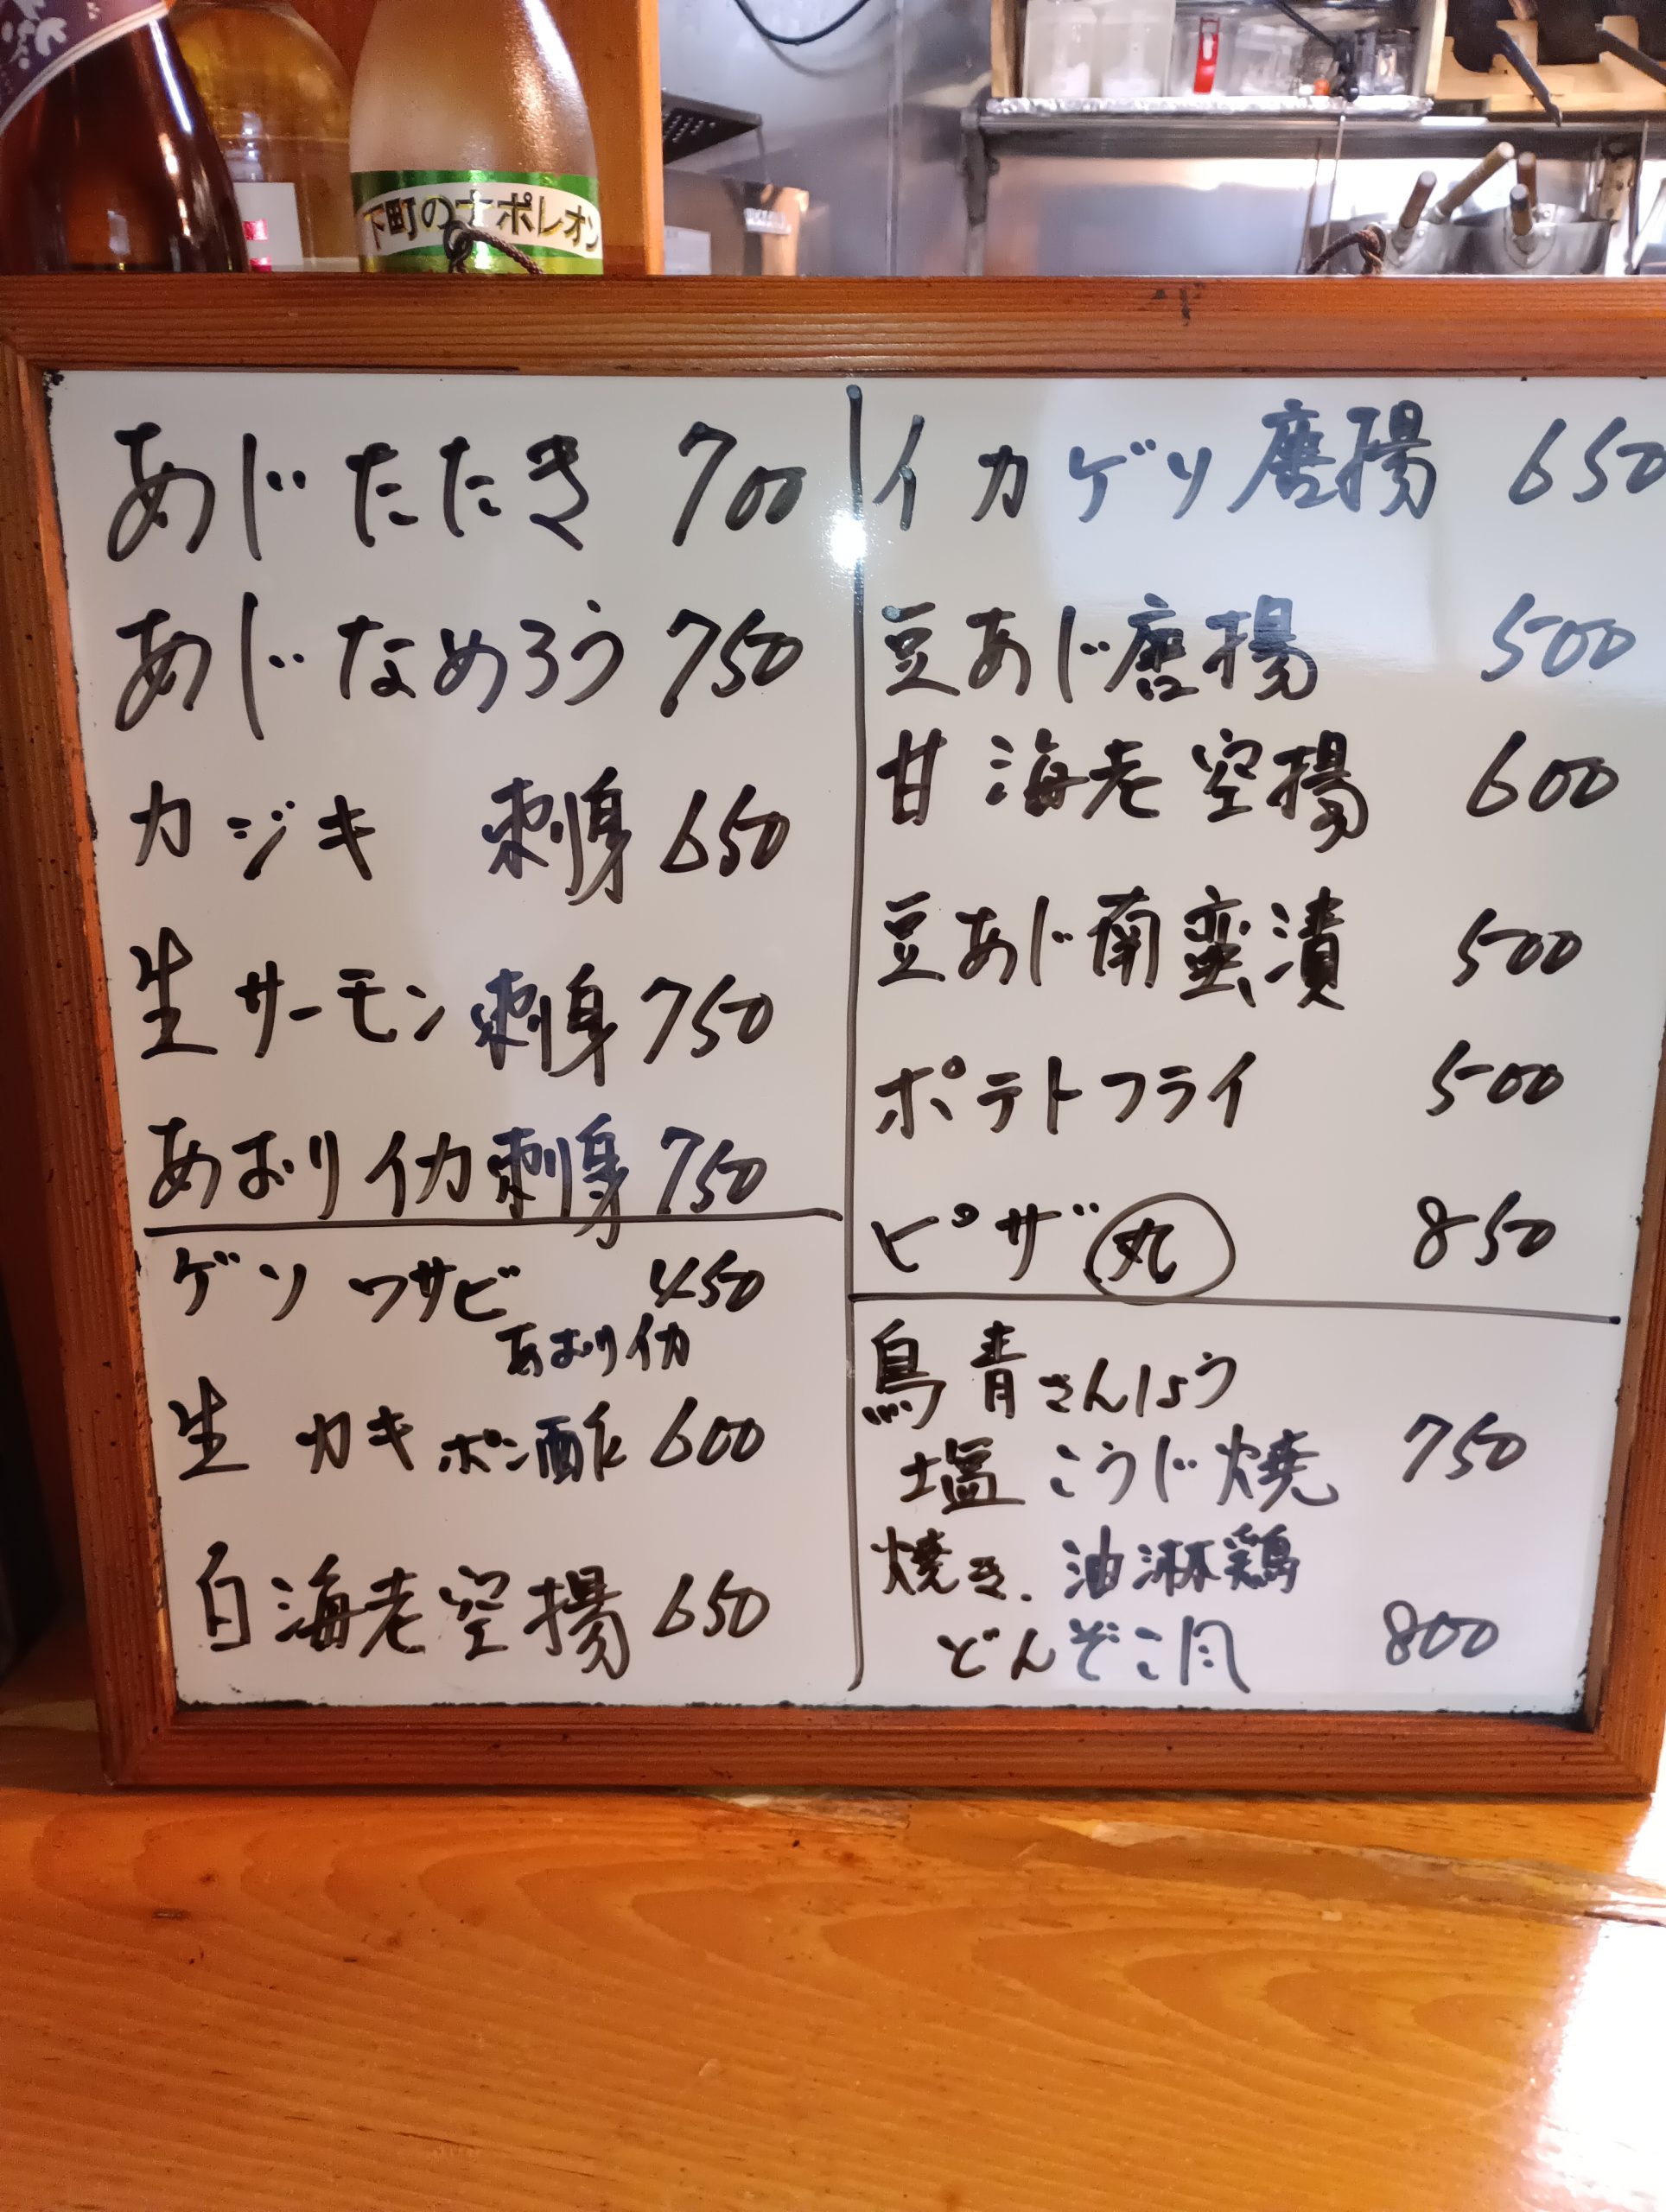 下町のナポレオン
あじたたき 700
あじなめろう 750
カジキ 刺身 650
生サーモン刺身 750
あおりイカ刺身 750
ゲソワサビ 450
あおりイカ
生カキポン酢 600
白海老空揚 650
イカゲソ唐揚 650
豆あじ唐揚 500
甘海老空揚 600
豆あじ南蛮漬 500
ポテトフライ 500
ピザ丸 850
鳥青さんしょう
塩こうじ焼 750
焼き、油淋鶏
どんぞこ風 800